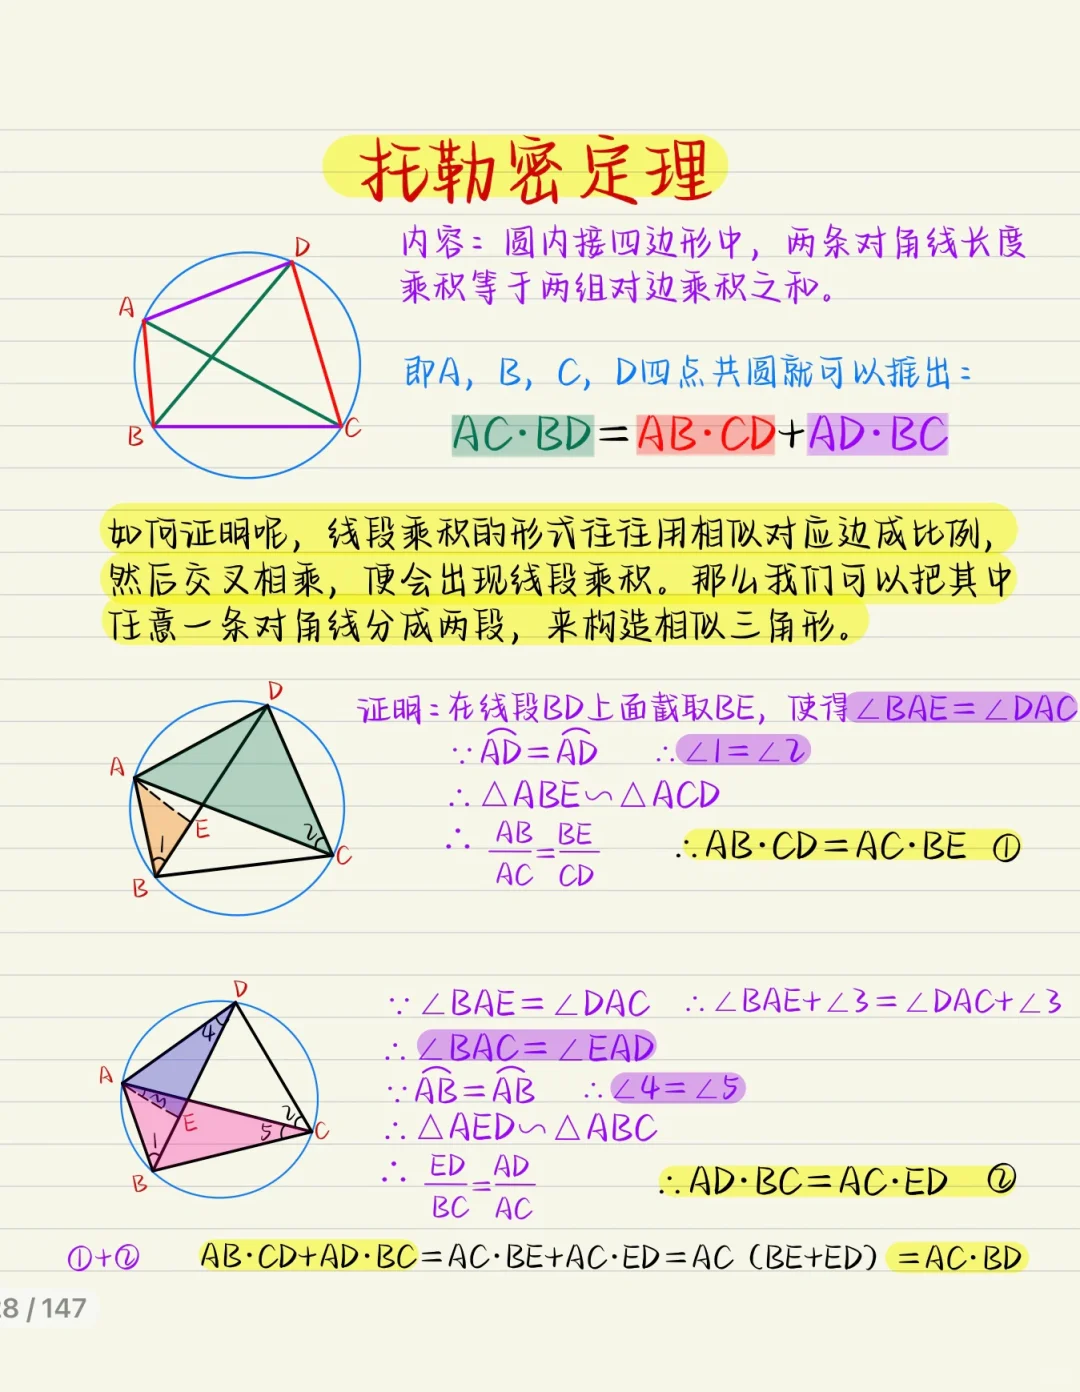 托勒密定理
D
A
B
C
内容：圆内接四边形中，两条对角线长度
乘积等于两组对边乘积之和。
即A，B，C，D四点共圆就可以推出：
AC·BD=AB·CD+AD·BC
如何证明呢，线段乘积的形式往往用相似对应边成比例，
然后交叉相乘，便会出现线段乘积。那么我们可以把其中
任意一条对角线分成两段，来构造相似三角形。
D
A
E
1
2
B
C
证明：在线段BD上面截取BE，使得∠BAE=∠DAC
∵ A͡D=A͡D ∴∠1=∠2
∴△ABE∽△ACD
∴ AB/AC=BE/CD ∴AB·CD=AC·BE ①
D
4
A
3
E
2
5
1
B
C
∵∠BAE=∠DAC ∴∠BAE+∠3=∠DAC+∠3
∴∠BAC=∠EAD
∵A͡B=A͡B ∴∠4=∠5
∴△AED∽△ABC
∴ ED/BC=AD/AC ∴AD·BC=AC·ED ②
①+② AB·CD+AD·BC=AC·BE+AC·ED=AC（BE+ED）=AC·BD
8 / 147